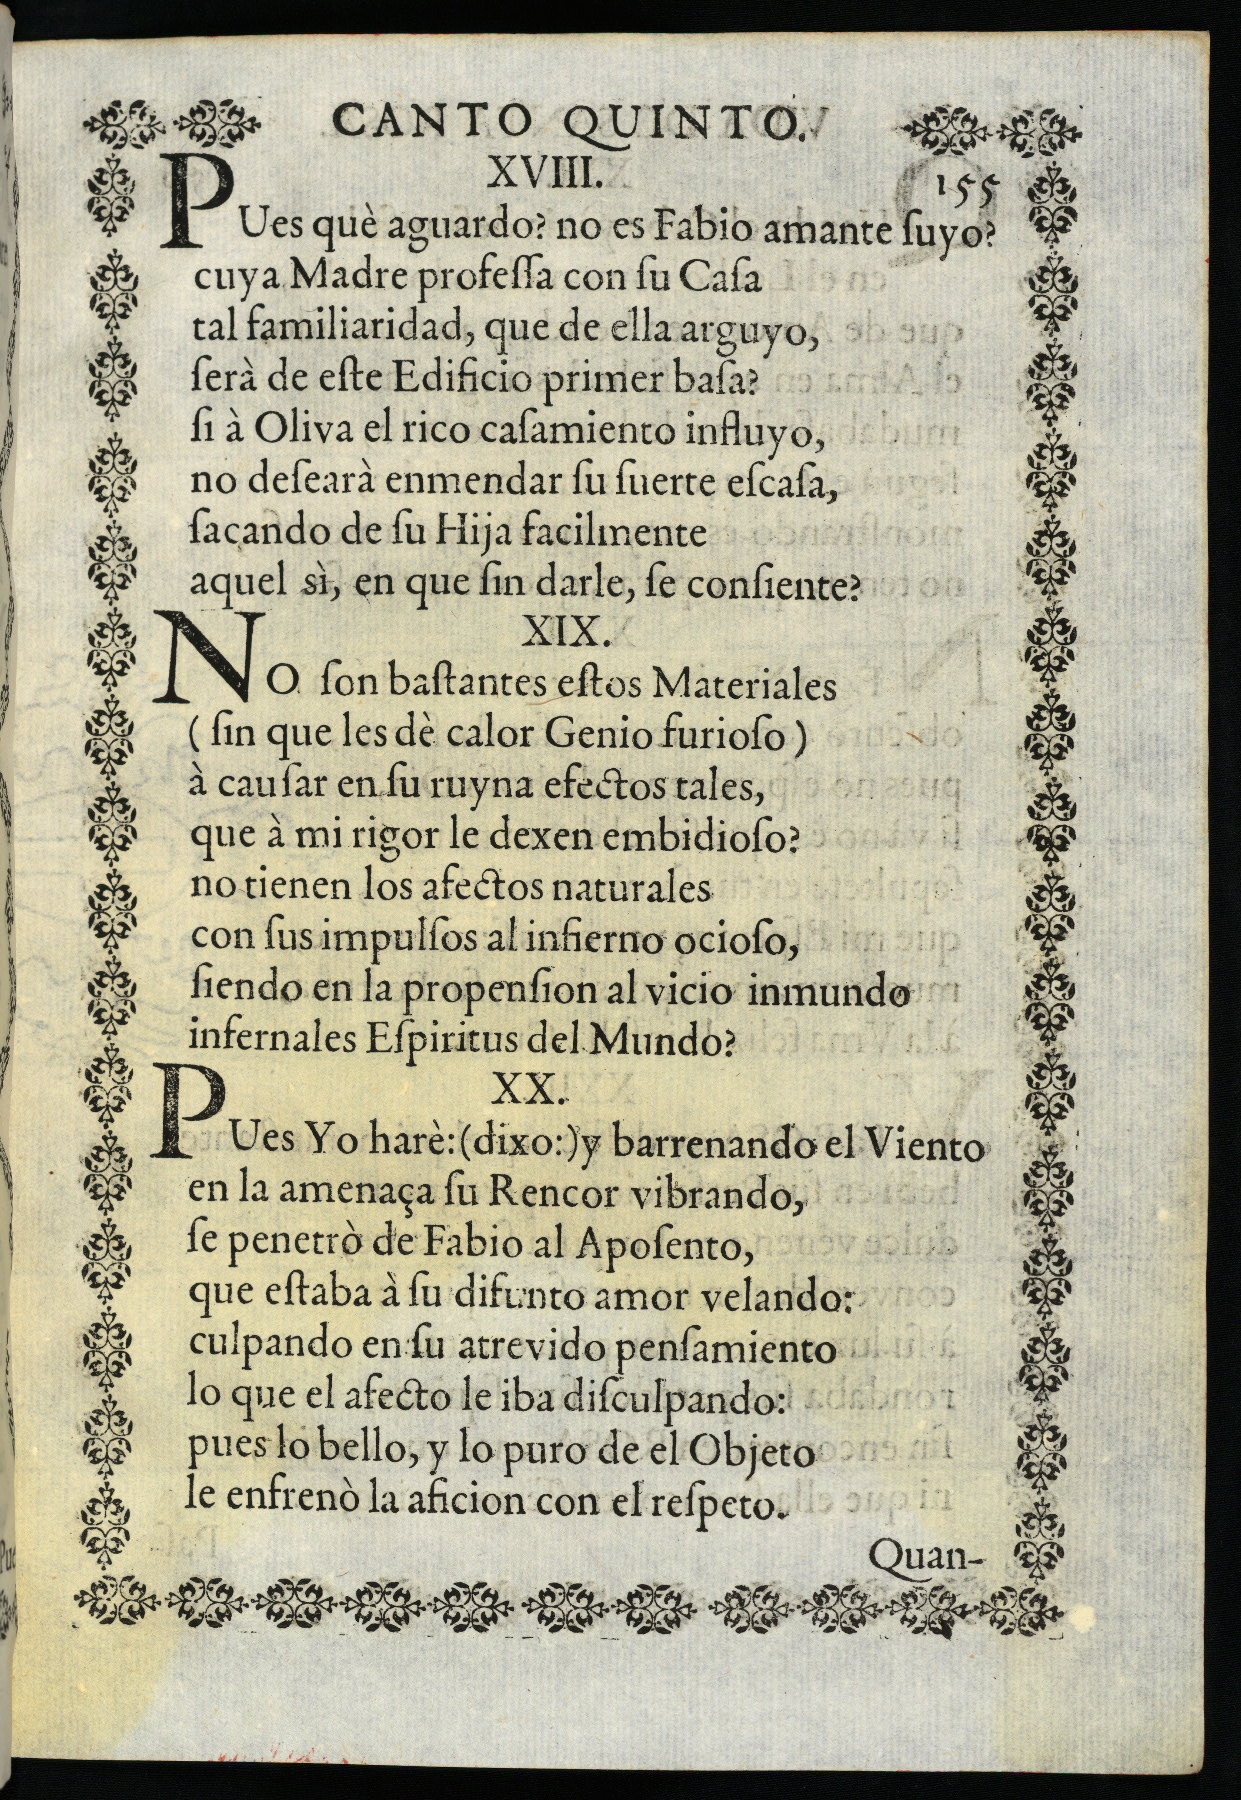 CANTO QUINTO.
XVIII.
155
PUes què aguardo? no es Fabio amante ſuyo?
cuya Madre profeſſa con ſu Caſa
tal familiaridad, que de ella arguyo,
ſerà de eſte Edificio primer baſa?
ſi à Oliva el rico caſamiento influyo,
no deſearà enmendar ſu ſuerte eſcaſa,
ſacando de ſu Hija facilmente
aquel sì, en que ſin darle, ſe conſiente?
XIX.
NO ſon baſtantes eſtos Materiales
( ſin que les dè calor Genio furioſo )
à cauſar en ſu ruyna efectos tales,
que à mi rigor le dexen embidioſo?
no tienen los afectos naturales
con ſus impulſos al infierno ocioſo,
ſiendo en la propenſion al vicio inmundo
infernales Eſpiritus del Mundo?
XX.
PUes Yo harè: (dixo:) y barrenando el Viento
en la amenaça ſu Rencor vibrando,
ſe penetrò de Fabio al Apoſento,
que eſtaba à ſu difunto amor velando:
culpando en ſu atrevido penſamiento
lo que el afecto le iba diſculpando:
pues lo bello, y lo puro de el Objeto
le enfrenò la aficion con el reſpeto.
Quan-